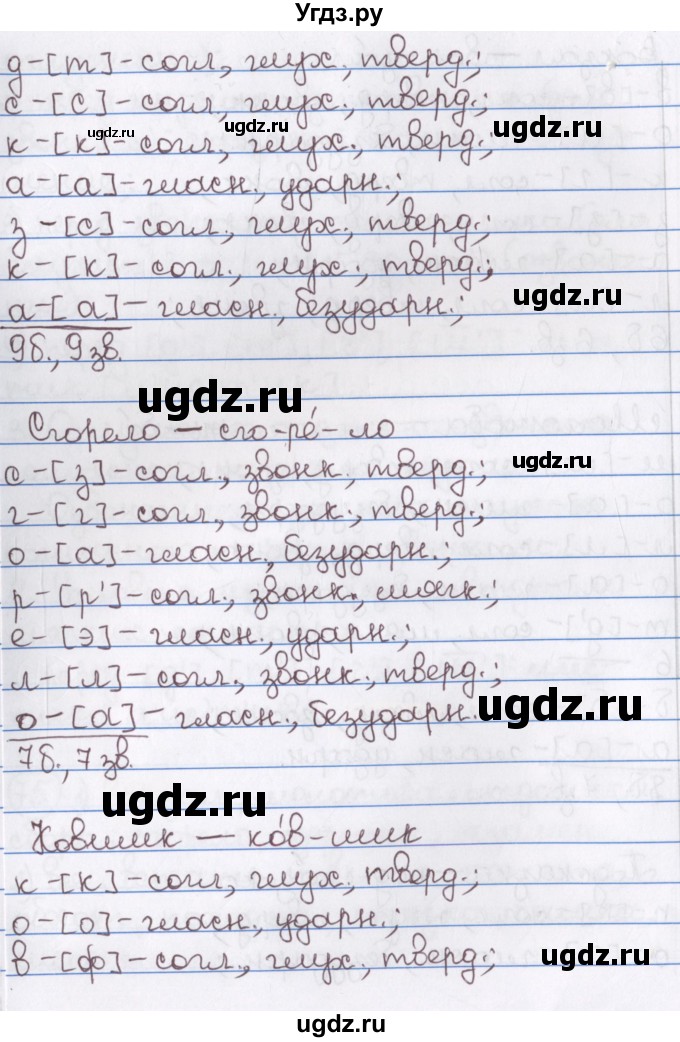 Угдз.ру
д-[т]-согл., глух., тверд.;
с-[с]-согл., глух., тверд.;
к-[к]-согл., глух., тверд.;
а-[а]-гласн., ударн.;
з-[с]-согл., глух., тверд.;
к-[к]-согл., глух., тверд.;
а-[а]-гласн. безударн.;
9б., 9зв.
Сгорело - сго-ре́-ло
с-[з]-согл., звонк., тверд.;
г-[г]-согл., звонк., тверд.;
о-[а]-гласн., безударн.;
р-[р']-согл., звонк., мягк.;
е-[э]-гласн., ударн.;
л-[л]-согл., звонк., тверд.;
о-[а]-гласн., безударн.
7б., 7зв.
Ковшик - ко́в-шик
к-[к]-согл., глух., тверд.;
о-[о]-гласн., ударн.;
в-[ф]-согл., глух., тверд.;
ugdz.ru
ugdz.ru
ugdz.ru
ugdz.ru
ugdz.ru
ugdz.ru
ugdz.ru
ugdz.ru
ugdz.ru
ugdz.ru